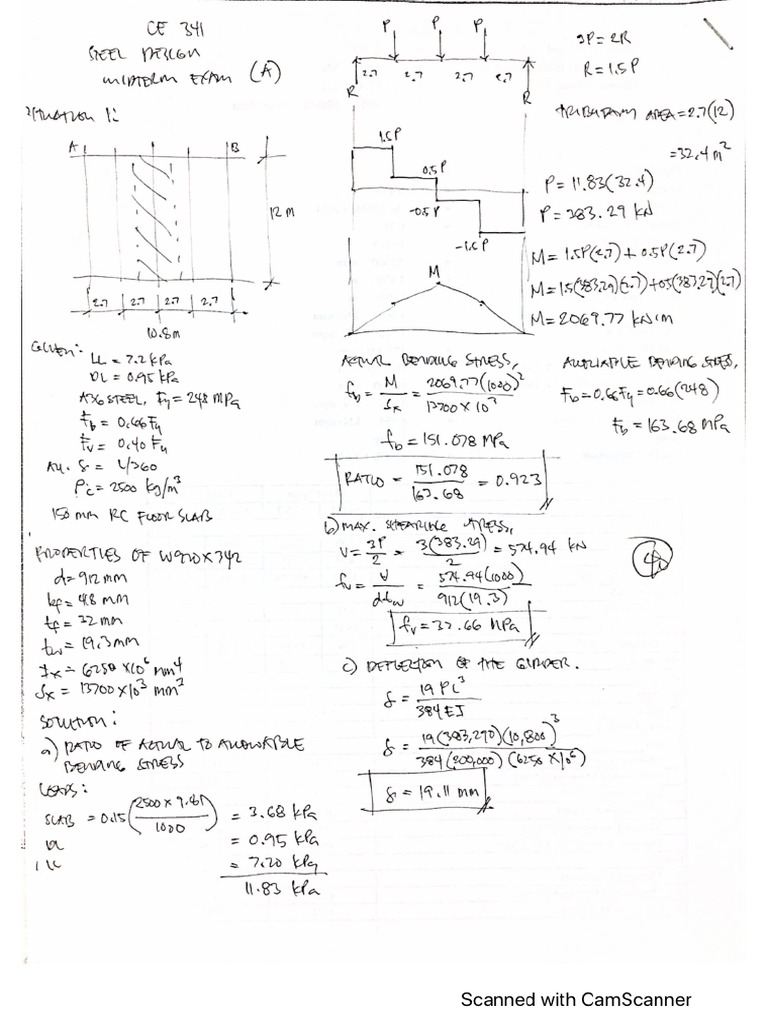 CE 341
STEEL DESIGN
MIDTERM EXAM (A)
SITUATION 1:
A
B
12 m
2.7 2.7 2.7 2.7
10.8m
GIVEN:
LL = 7.2 kPa
DL = 0.95 kPa
A36 STEEL, Fy = 248 MPa
Fb = 0.66Fy
Fv = 0.40 Fy
ALL. δ = L/360
ρc = 2500 kg/m³
150 mm RC FLOOR SLAB
PROPERTIES OF W920X342
d = 912 mm
bf = 48 mm
tf = 32 mm
tw = 19.3 mm
Ix = 6250 X10⁶ mm⁴
Sx = 13700 X10³ mm³
SOLUTION:
a) RATIO OF ACTUAL TO ALLOWABLE
BENDING STRESS
LOADS:
SLAB = 0.15 (2500 x 9.81 / 1000) = 3.68 kPa
DL = 0.95 kPa
LL = 7.20 kPa
11.83 kPa
P P P
2.7 2.7 2.7 2.7
R R
3P = 2R
R = 1.5P
TRIBUTARY AREA = 2.7(12)
= 32.4 m²
1.5P
0.5P
-0.5P
-1.5P
P = 11.83(32.4)
P = 383.29 kN
M
M = 1.5P(2.7) + 0.5P(2.7)
M = 1.5(383.29)(2.7) + 0.5(383.29)(2.7)
M = 2069.77 kN·m
ACTUAL BENDING STRESS,
fb = M / Sx = 2069.77(1000)² / 13700 X 10³
fb = 151.078 MPa
RATIO = 151.078 / 163.68 = 0.923
ALLOWABLE BENDING STRESS,
Fb = 0.66Fy = 0.66(248)
Fb = 163.68 MPa
b) MAX. SHEARING STRESS,
V = 3P / 2 = 3(383.29) / 2 = 574.94 kN
fv = V / dtw = 574.94(1000) / 912(19.3)
fv = 32.66 MPa
c) DEFLECTION OF THE GIRDER.
δ = 19PL³ / 384EI
δ = 19(383,290)(10,800)³ / 384(200,000)(6250 X10⁶)
δ = 19.11 mm
Scanned with CamScanner